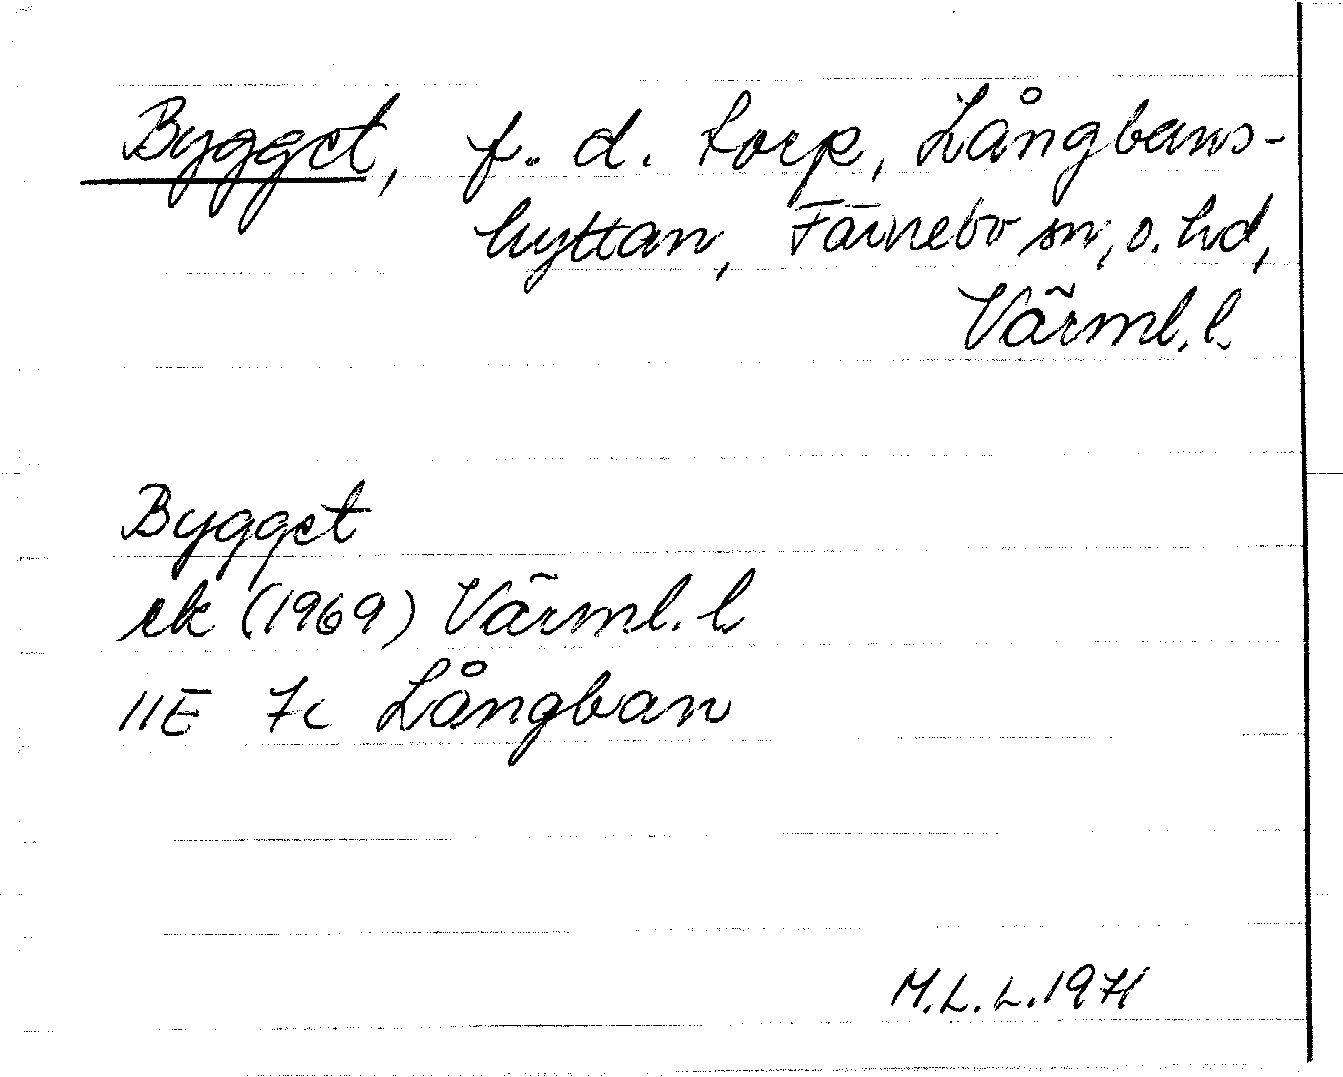 Bygget, f. d. torp, Långbans-
hyttan, Färnebo sn, o. hd,
Värml. l.
Bygget
ek (1969) Värml. l.
11E 7c Långban
M.L.L. 1971